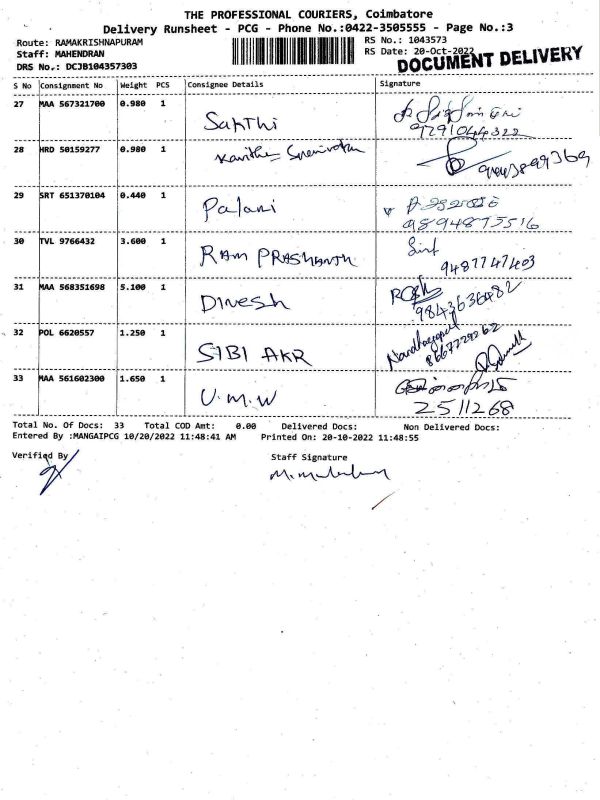 THE PROFESSIONAL COURIERS, Coimbatore
Delivery Runsheet - PCG - Phone No.:0422-3505555 - Page No.:3
Route: RAMAKRISHNAPURAM RS No.: 1043573
Staff: MAHENDRAN RS Date: 20-Oct-2022
DRS No.: DCJB104357303 DOCUMENT DELIVERY
S No Consignment No Weight PCS Consignee Details Signature
27 MAA 567321700 0.980 1
Sakthi 9791044322
28 HRD 50159277 0.980 1
Kavitha
29 SRT 651370104 0.440 1
Palani
9894875516
30 TVL 9766432 3.600 1
RAM PRASHANTH 9487747403
31 MAA 568351698 5.100 1
Dinesh 9843636482
32 POL 6620557 1.250 1
SIBI AKR 8667729262
33 MAA 561602300 1.650 1
U.M.W 2511268
Total No. Of Docs: 33 Total COD Amt: 0.00 Delivered Docs: Non Delivered Docs:
Entered By :MANGAIPCG 10/20/2022 11:48:41 AM Printed On: 20-10-2022 11:48:55
Verified By Staff Signature